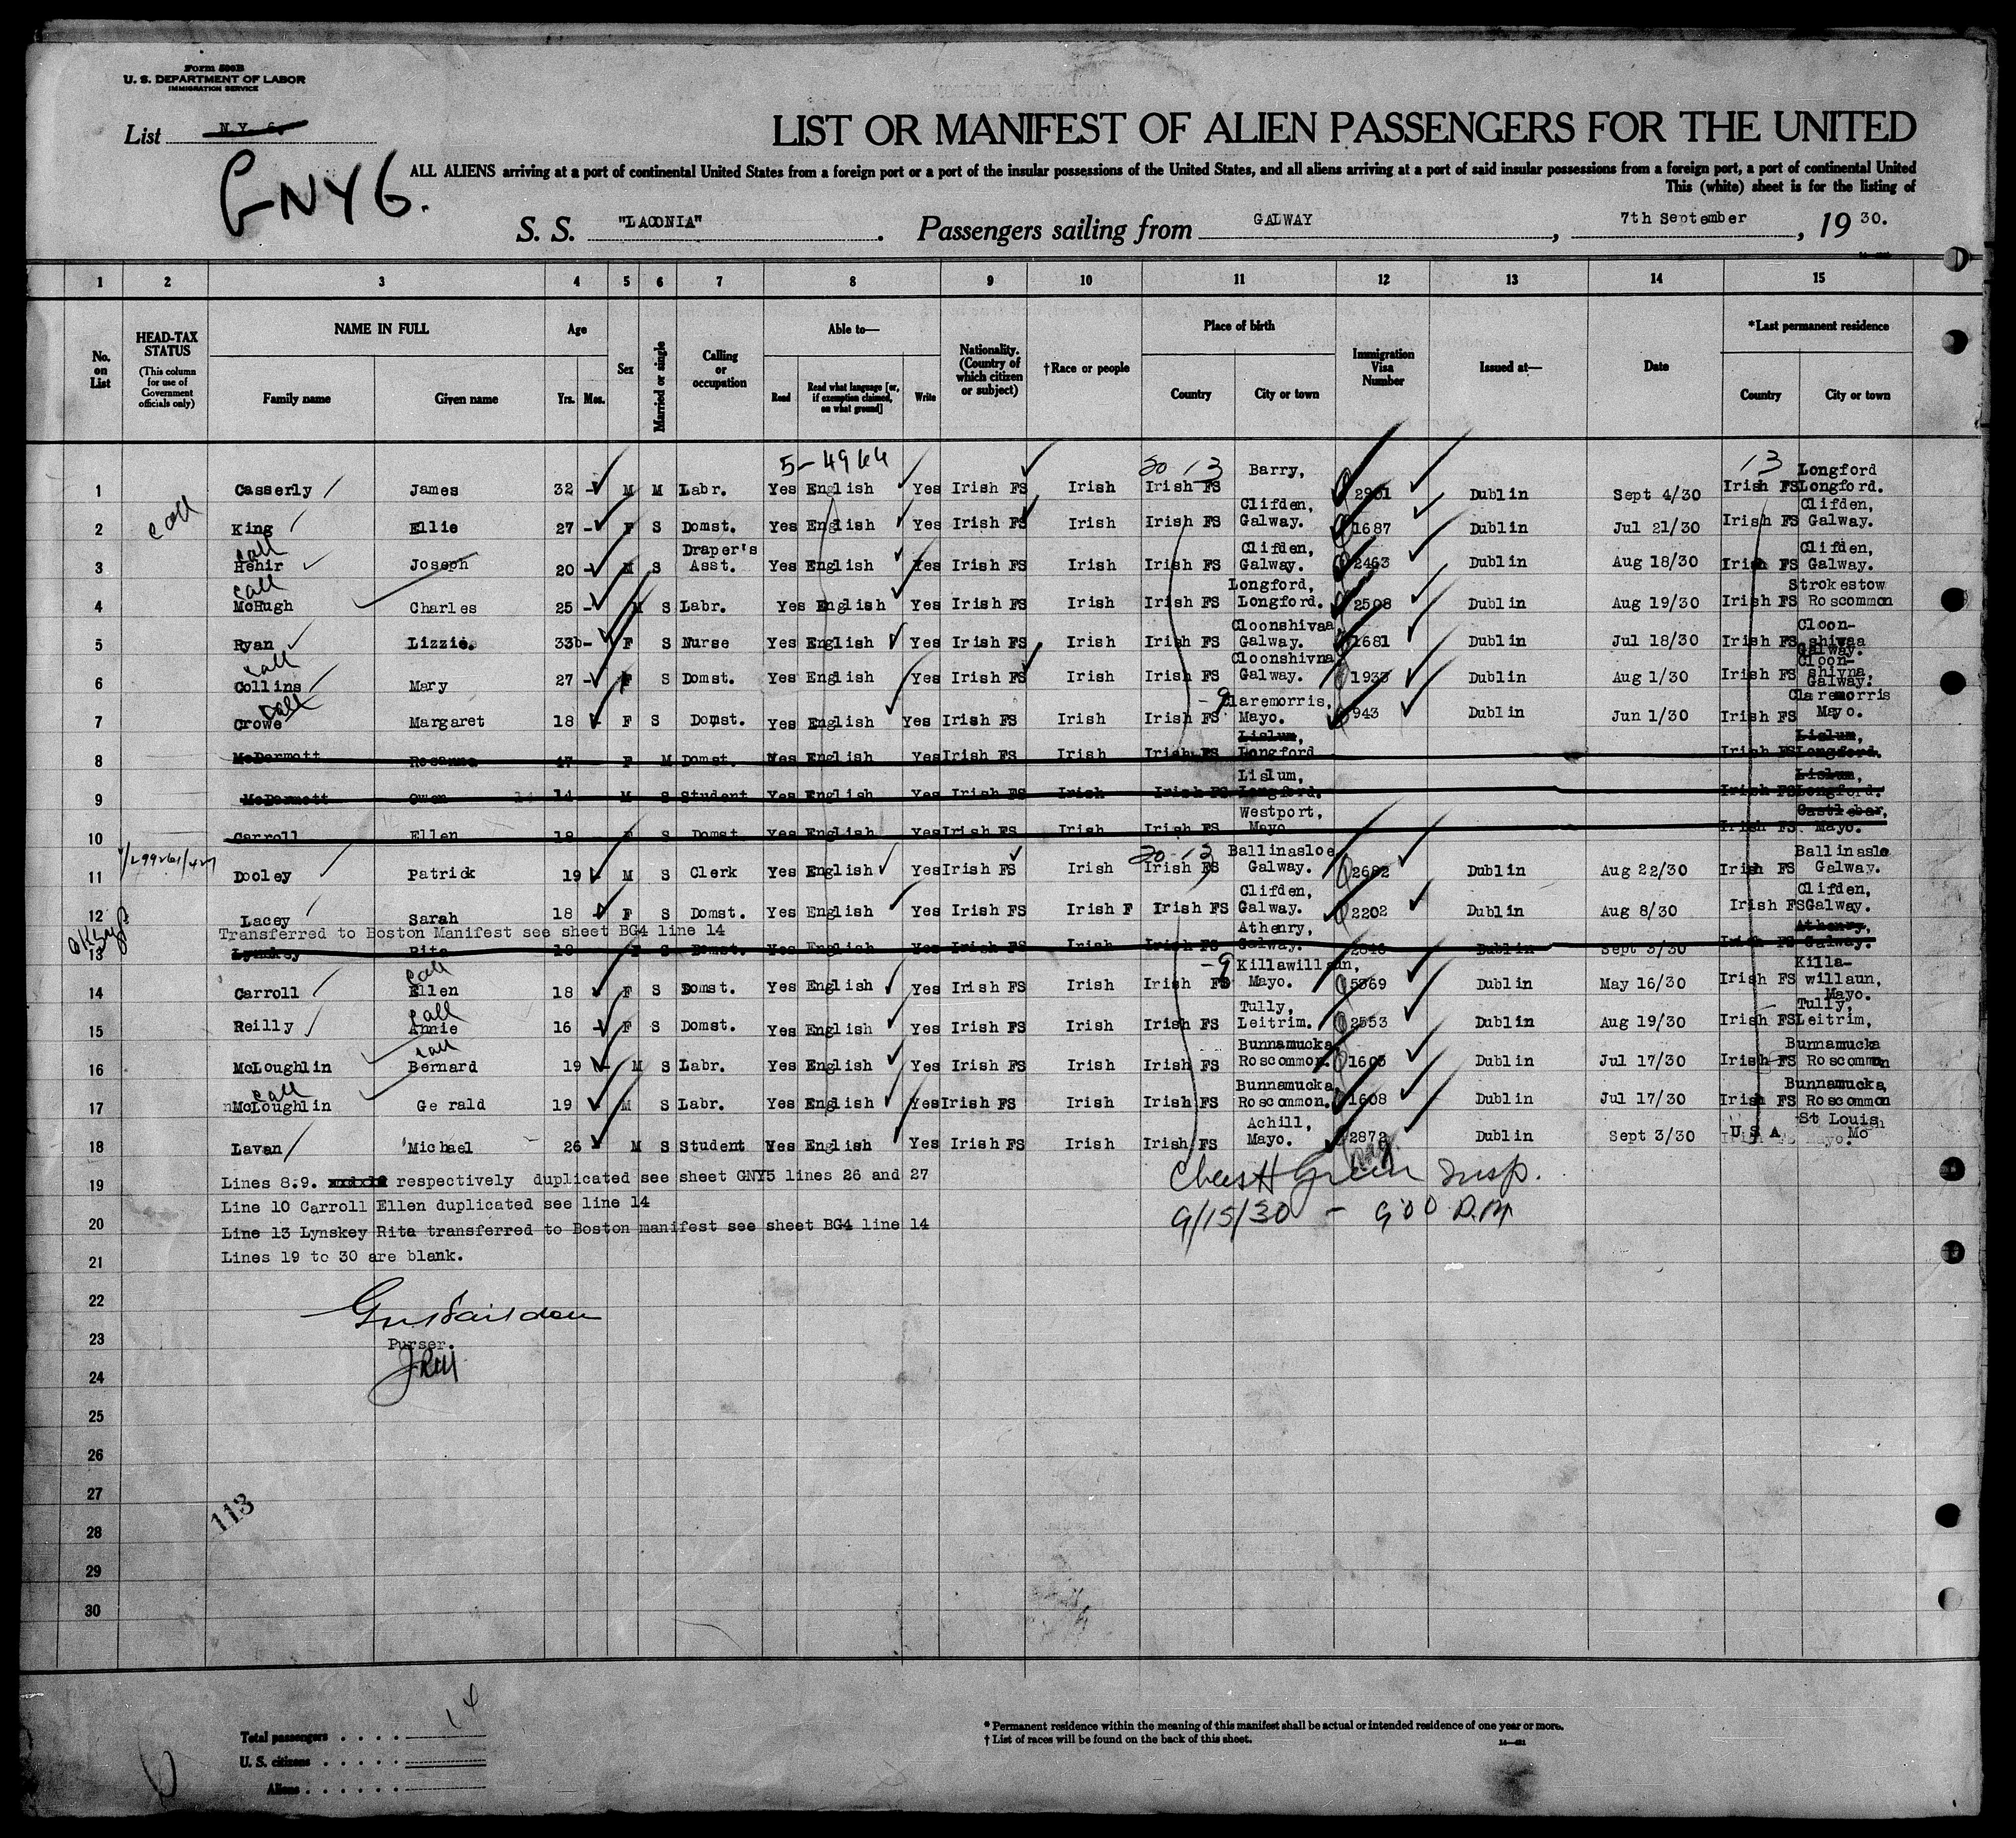 Form 500B
U. S. DEPARTMENT OF LABOR
IMMIGRATION SERVICE
List N.Y. 6.
GNY6.
LIST OR MANIFEST OF ALIEN PASSENGERS FOR THE UNITED
ALL ALIENS arriving at a port of continental United States from a foreign port or a port of the insular possessions of the United States, and all aliens arriving at a port of said insular possessions from a foreign port, a port of continental United
This (white) sheet is for the listing of
S. S. "LACONIA". Passengers sailing from GALWAY, 7th September, 19 30.
1 2 3 4 5 6 7 8 9 10 11 12 13 14 15
No. on List
HEAD-TAX STATUS (This column for use of Government officials only)
NAME IN FULL Family name Given name
Age Yrs. Mos.
Sex
Married or single
Calling or occupation
Able to— Read Read what language [or, if exemption claimed, on what ground] Write
Nationality. (Country of which citizen or subject)
†Race or people
Place of birth Country City or town
Immigration Visa Number
Issued at—
Date
*Last permanent residence Country City or town
5-4964 30 13 13
1 Casserly James 32 - M M Labr. Yes English Yes Irish FS Irish Irish FS Barry, 2961 Dublin Sept 4/30 Irish FS Longford Longford.
2 call King Ellie 27 - F S Domst. Yes English Yes Irish FS Irish Irish FS Clifden, Galway. 1687 Dublin Jul 21/30 Irish FS Clifden, Galway.
call
3 Hehir Joseph 20 - M S Draper's Asst. Yes English Yes Irish FS Irish Irish FS Clifden, Galway. 2463 Dublin Aug 18/30 Irish FS Clifden, Galway.
call
4 McHugh Charles 25 - M S Labr. Yes English Yes Irish FS Irish Irish FS Longford, Longford. 2508 Dublin Aug 19/30 Irish FS Strokestow Roscommon
5 Ryan Lizzie. 33b- F S Nurse Yes English Yes Irish FS Irish Irish FS Cloonshivaa Galway. 1681 Dublin Jul 18/30 Irish FS Cloon-shivaa Galway.
call
6 Collins Mary 27 - F S Domst. Yes English Yes Irish FS Irish Irish FS Cloonshivna Galway. 1933 Dublin Aug 1/30 Irish FS Cloon-shivna, Galway.
call
7 Crowe Margaret 18 F S Domst. Yes English Yes Irish FS Irish Irish FS -9 Claremorris, Mayo. 943 Dublin Jun 1/30 Irish FS Claremorris Mayo.
8 McDermott Rosanna 47 F M Domst. Yes English Yes Irish FS Irish Irish FS Lislum, Longford Irish FS Lislum, Longford.
9 McDermott Owen 14 14 M S Student Yes English Yes Irish FS Irish Irish FS Lislum, Longford. Irish FS Lislum, Longford.
10 Carroll Ellen 18 - F S Domst Yes English Yes Irish FS Irish Irish FS Westport, Mayo Irish FS Castlebar, Mayo.
11 Dooley Patrick 19 M S Clerk Yes English Yes Irish FS Irish 30 13 Irish FS Ballinasloe Galway. 2682 Dublin Aug 22/30 Irish FS Ballinasloe Galway.
12 Lacey Sarah 18 - F S Domst. Yes English Yes Irish FS Irish F Irish FS Clifden, Galway. 2202 Dublin Aug 8/30 Irish FS Clifden, Galway.
Transferred to Boston Manifest see sheet BG4 line 14
13 Lynskey Rita 18 F S Domst. Yes English Yes Irish FS Irish Irish FS Athenry, Galway. 2846 Dublin Sept 3/30 Irish FS Athenry, Galway.
call
14 Carroll Ellen 18 F S Domst. Yes English Yes Irish FS Irish Irish FS -9 Killawillaun, Mayo. 5369 Dublin May 16/30 Irish FS Killa-willaun, Mayo.
call
15 Reilly Annie 16 - F S Domst. Yes English Yes Irish FS Irish Irish FS Tully, Leitrim. 2553 Dublin Aug 19/30 Irish FS Tully, Leitrim,
call
16 McLoughlin Bernard 19 M S Labr. Yes English Yes Irish FS Irish Irish FS Bunnamucka, Roscommon. 1605 Dublin Jul 17/30 Irish FS Bunnamucka Roscommon
call
17 McLoughlin Gerald 19 M S Labr. Yes English Yes Irish FS Irish Irish FS Bunnamucka, Roscommon. 1608 Dublin Jul 17/30 Irish FS Bunnamucka, Roscommon
18 Lavan Michael 26 M S Student Yes English Yes Irish FS Irish Irish FS Achill, Mayo. 2872 Dublin Sept 3/30 U S A St Louis Mo
19 Lines 8.9. respectively duplicated see sheet GNY5 lines 26 and 27
Chas H Green Insp.
Line 10 Carroll Ellen duplicated see line 14
9/15/30 - 9:00 P.M
20 Line 13 Lynskey Rita transferred to Boston manifest see sheet BG4 line 14
21 Lines 19 to 30 are blank.
22
23 Purser.
24
25
26
27
28
113
29
30
Total passengers . . . . 14
U. S. citizens . . . . .
Aliens . . . . . .
* Permanent residence within the meaning of this manifest shall be actual or intended residence of one year or more.
† List of races will be found on the back of this sheet.